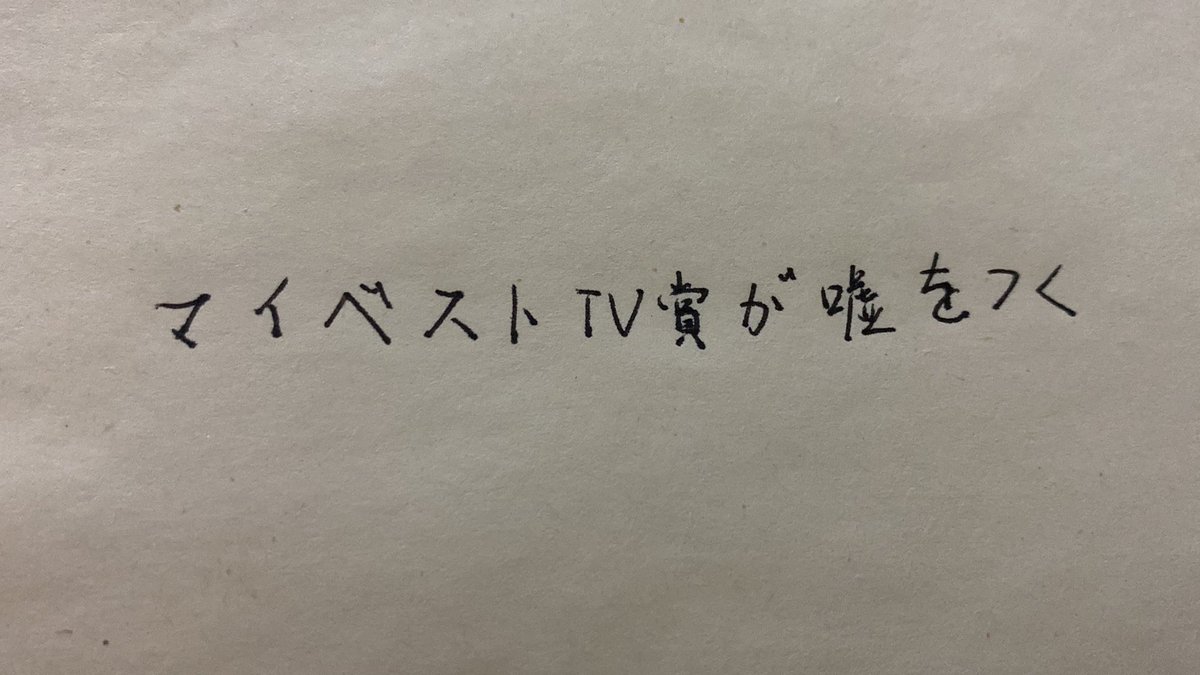 マイベストTV賞が嘘をつく